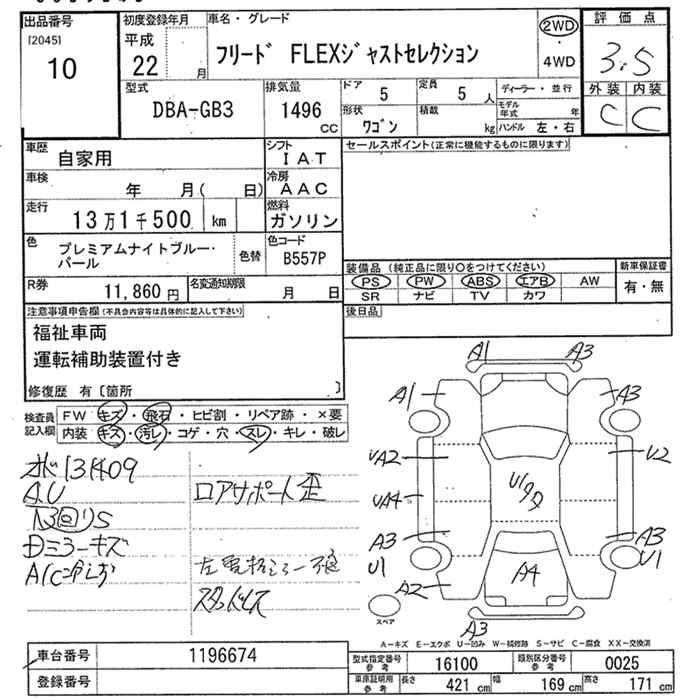 出品番号
[2045]
10
初度登録年月
平成
22 月
車名・グレード
フリード FLEXジャストセレクション
2WD
・
4WD
評価点
3.5
外装 内装
C C
型式
DBA-GB3
排気量
1496
CC
ドア
5
定員
5 人
ディーラー・並行
モデル年式 年
形状
ワゴン
積載
kg
ハンドル 左・右
車歴
自家用
シフト
IAT
セールスポイント(正常に機能するものに限ります)
車検
年 月( 日)
冷房
AAC
走行
13万1千500 km
燃料
ガソリン
色
プレミアムナイトブルー・
パール
色替
色コード
B557P
装備品 (純正品に限り○をつけてください)
新車保証書
PS PW ABS エアB AW
有・無
SR ナビ TV カワ
R券
11,860 円
名変通知期限
月 日
後日品
注意事項申告欄(不具合内容等は具体的に記入して下さい)
福祉車両
運転補助装置付き
修復歴 有〔箇所 〕
検査員
記入欄
FW キズ・飛石・ヒビ割・リペア跡・×要
内装 キズ・汚レ・コゲ・穴・スレ・キレ・破レ
131409
AU
ロアサポート歪
S
Dミラーキズ
A/C
A1 A3
A1 A3
UA2 U2
U1
UA4
A3 A3
U1 U1
A4
A2
A3
スペア
A-キズ E-エクボ U-凹み W-補修跡 S-サビ C-腐食 XX-交換済
車台番号
1196674
登録番号
型式指定番号
参考
16100
類別区分番号
参考
0025
車庫証明用
参考
長さ 421 cm
幅 169 cm
高さ 171 cm